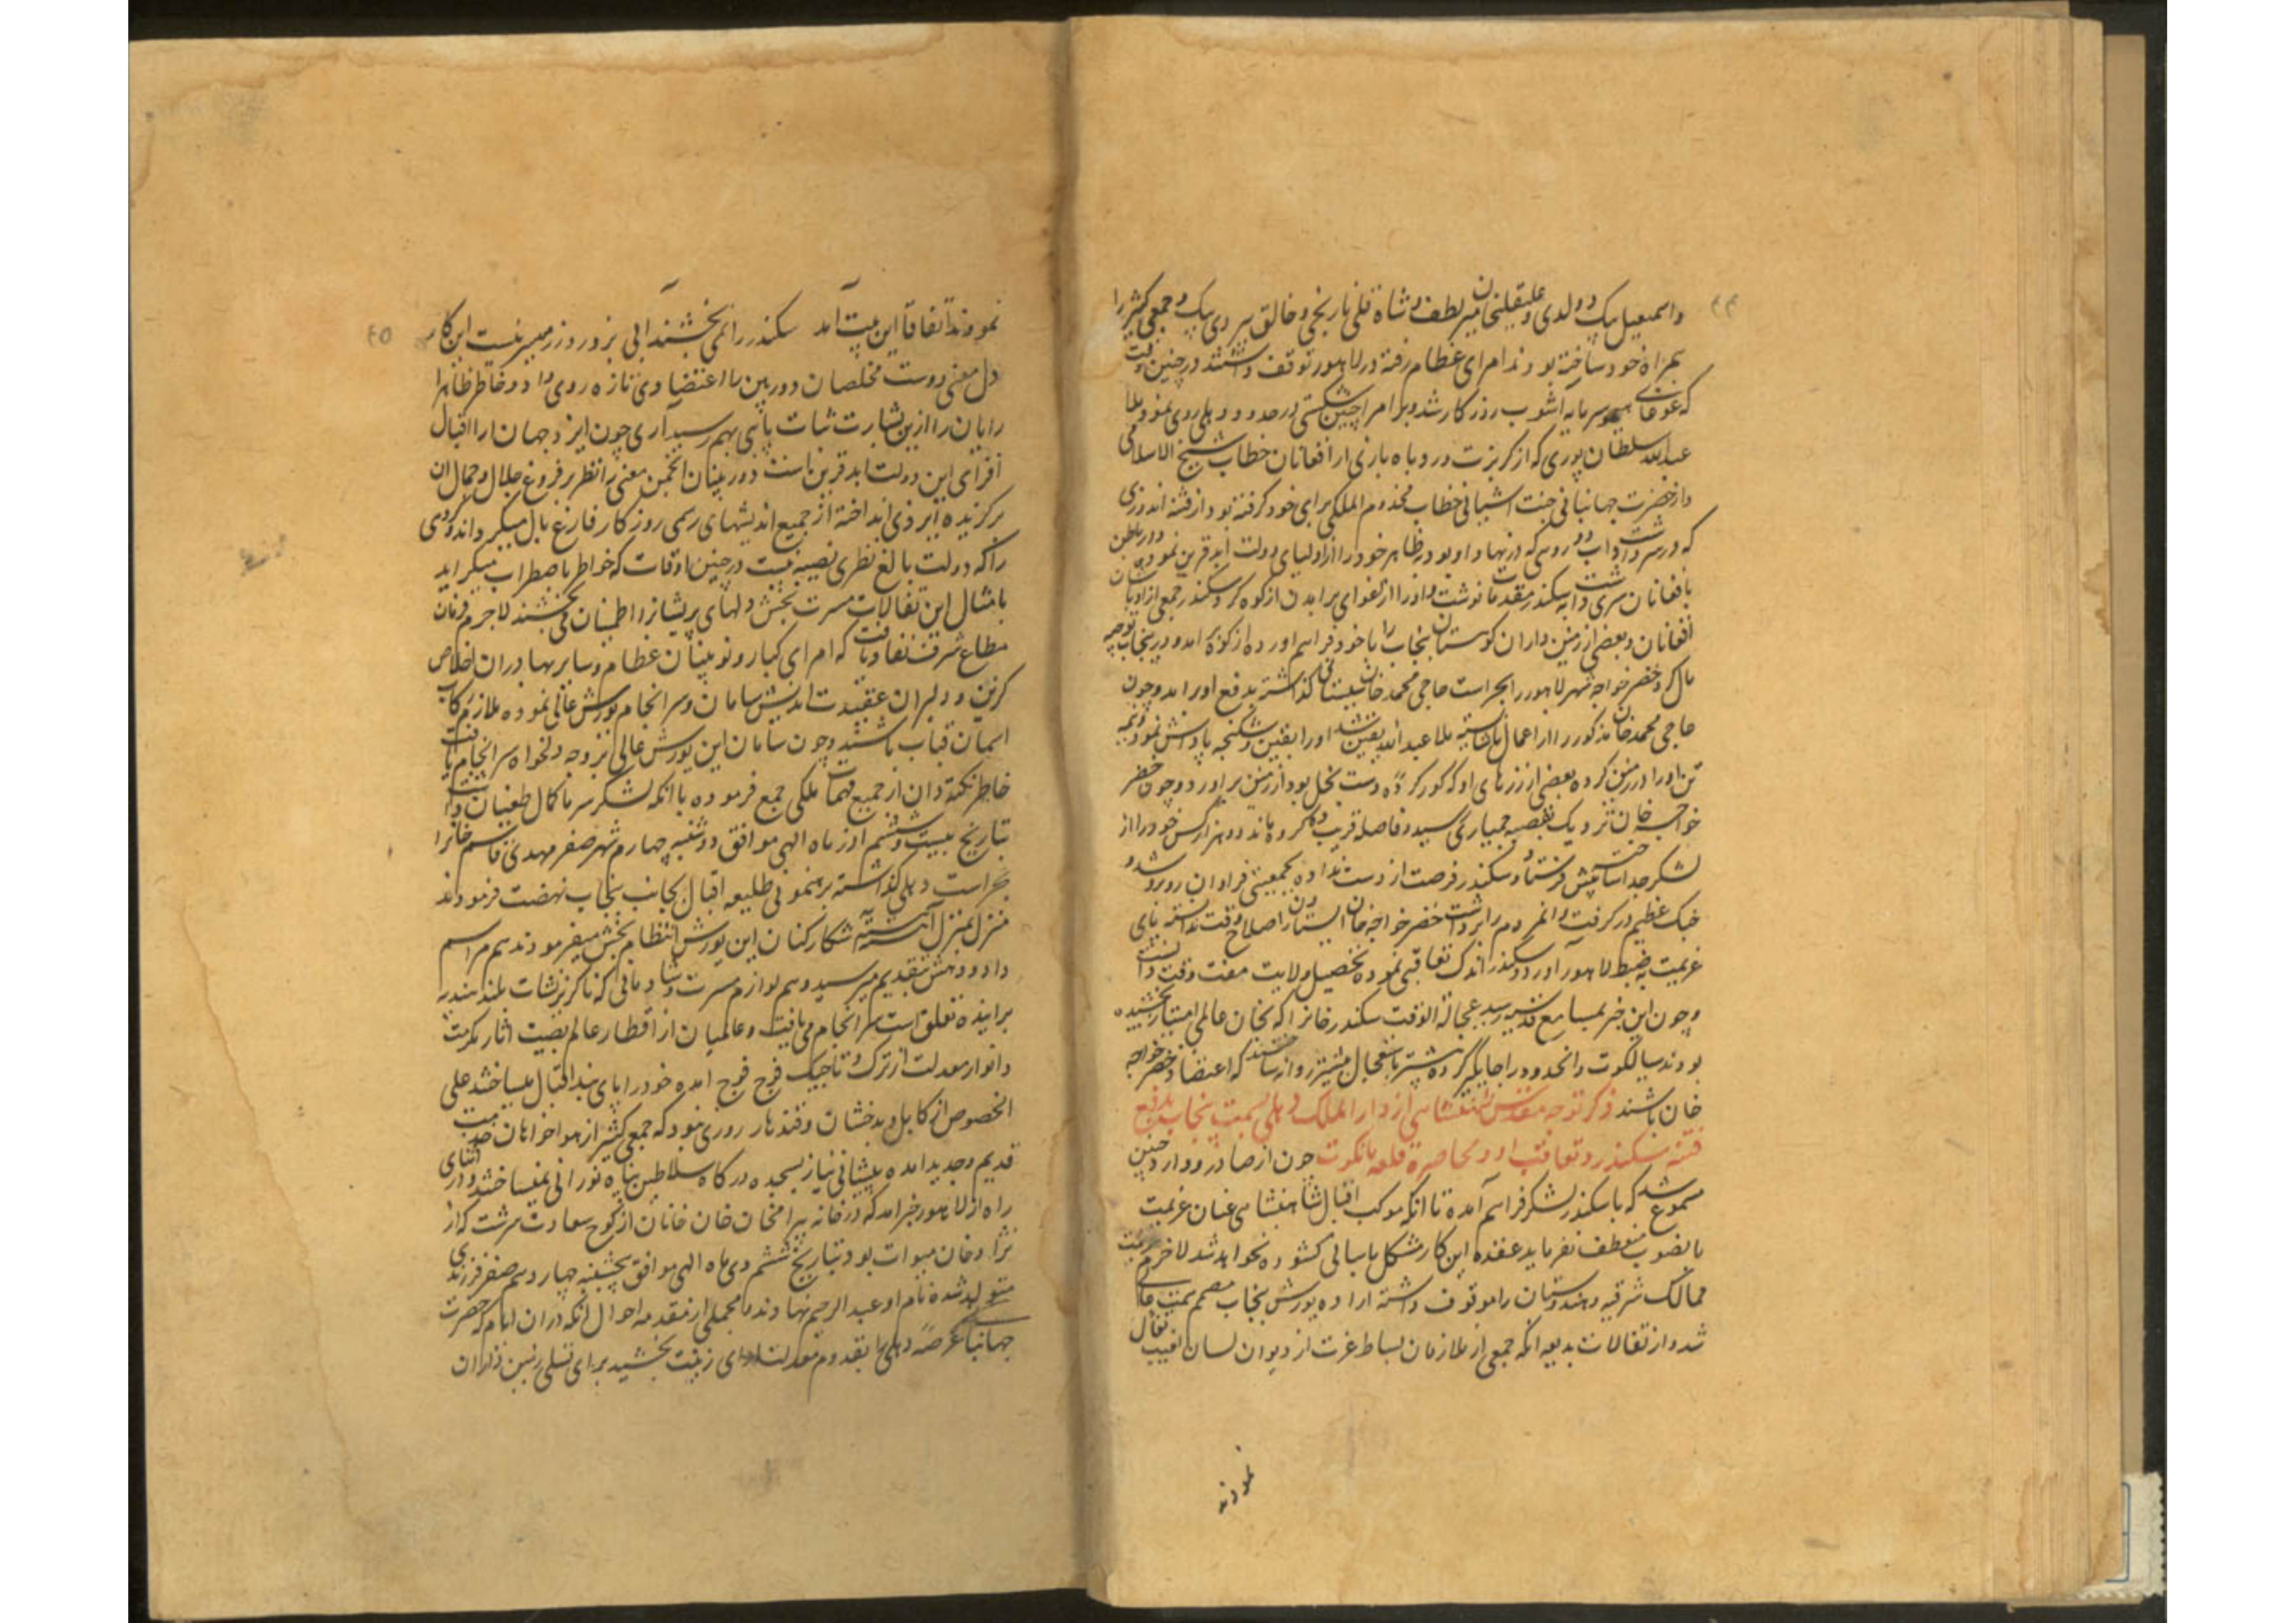 ۴۴
واسمعیل بیک دولدی وعلیقلیخان میر لطف و شاه قلی نارنجی و خالق بیردی بیک و جمعی کثیر را
همراه خود ساخته بودند امرای عظام رفته در لاهور توقف داشتند در چنین وقت
که غوغای هیمو سرمایه آشوب روزگار شد و بر امرا چنین شکستی در حدود دهلی روی نمود ملا
عبدالله سلطان پوری که از کربزت و روباه بازی از افغانان خطاب شیخ الاسلامی
و از حضرت جهانبانی جنت آشیانی خطاب مخدوم الملکی برای خود گرفته بود از فتنه اندوزی
که در سرشت داشت و دو رویی که در نهاد او بود در ظاهر خود را از اولیای دولت ابد قرین نمود و در باطن
با افغانان سری داشت به سکندر مقدمات نوشت و او را اغوای برآمدن از کوه کرد و سکندر جمعی از اوباشان
افغانان و بعضی از زمین داران کوهستان پنجاب را با خود فراهم آورده از کوه برآمد و در پنجاب توجیه
مال کرد خضر خواجه شهر لاهور را بحراست حاجی محمدخان سیستانی گذاشته بدفع او برآمد و چون
حاجی محمدخان مذکور را از اعمال ناشایسته ملا عبدالله یقین شد او را بقین و شکنجه پاداش نمود و نیمه
تن او را در زمین کرده بعضی از زرهای او که گور کرده دست بخل بود از زمین برآورد و چون خضر
خواجه خان نزدیک بقصبه چمیاری رسید و فاصله قریب ده کروه ماند دو هزار کس خود را از
لشکر جدا ساخته پیش فرستاد و سکندر فرصت از دست نداده بجمعیتی فراوان روبرو شد و
جنگ عظیم درگرفت و آنمردم را برداشت خضر خواجه خان ایستادن را صلاح وقت ندانسته پای
عزیمت به ضبط لاهور آورد و سکندر اندک تعاقبی نموده تحصیل ولایت مفت وقت دانست
و چون این خبر بمسامع قدسیه رسید عجالة الوقت سکندر خانرا که بخان عالمی امتیاز بخشیده
بودند سیالکوت و آنحدود را جایگیر کرده پیشتر باستعجال بیشتر روانه ساختند که اعتضاد خضر خواجه
خان باشند ذکر توجه مقدس شاهنشاهی از دار الملک دهلی بسمت پنجاب بدفع
فتنه سکندر و تعاقب او و محاصره قلعه مانکوت چون از صادر و وارد چنین
مسموع شد که با سکندر لشکر فراهم آمده تا آنکه موکب اقبال شاهنشاهی عنان عزیمت
بآنصوب منعطف نفرماید عقده این کار مشکل بآسانی گشوده نخواهد شد لاجرم عزیمت
ممالک شرقیه هندوستان را موقوف داشته اراده یورش پنجاب مصمم
شد و از تفالات بدیعه آنکه جمعی از ملازمان بساط عزت از دیوان لسان الغیب تفال
نمودند
۴۵
نمودند اتفاقا این بیت آمد سکندر را نمی بخشند آبی بزور و زر میسر نیست این کار
دل معنی دوست مخلصان دوربین را اعتضادی تازه روی داد و خاطر ظاهر
رایان را ازین بشارت ثبات پائی بهم رسید آری چون ایزد جهان آرا اقبال
افزای این دولت ابد قرین است دوربینان انجمن معنی را نظر بر فروغ جلال و جمال آن
برگزیده ایزدی انداخته از جمیع اندیشهای رسمی روزگار فارغ بال میگرداند گروهی
را که دولت بالغ نظری نصیبه نیست در چنین اوقات که خواطر باضطراب میگراید
بامثال این تفالات مسرت بخش دلهای پریشانرا اطمینان می بخشند لاجرم فرمان
مطاع شرف نفاذ یافت که امرای کبار و نوئینان عظام و سایر بهادران اخلاص
گزین و دلیران عقیدت اندیش سامان و سرانجام یورش عالی نموده ملازم رکاب
آسمان قباب باشند و چون سامان این یورش عالی بر وجه دلخواه سرانجام یافت
خاطر نکته دان از جمیع مهمات ملکی جمع فرموده با آنکه لشکر سرما کمال طغیان داشت
بتاریخ بیست و ششم آذر ماه الهی موافق دوشنبه چهارم شهر صفر مهدی قاسم خانرا
بحراست دهلی گذاشته برهنمونی طلیعه اقبال بجانب پنجاب نهضت فرمودند
منزل بمنزل آهسته آهسته شکار کنان این یورش انتظام بخش میفرمودند هم مراسم
داد و دهش بتقدیم میرسید و هم لوازم مسرت و شادمانی که ناگزیر نشات بلند بندیه
براینده تعلق است سرانجام می یافت و عالمیان از اقطار عالم بصیت آثار مکرمت
و انوار معدلت از ترک و تاجیک فوج فوج آمده خود را پای بند اقبال میساختند علی
الخصوص از کابل و بدخشان و قندهار روزی نبود که جمعی کثیر از هواخواهان
قدیم و جدید آمده پیشانی نیاز بسجده درگاه سلاطین پناه نورانی نمیساختند و در اثنای
راه از لاهور خبر آمد که در خانه بیرامخان خان خانان از کوچ سعادت سرشت که از
نژاد خان میوات بود بتاریخ ششم دی ماه الهی موافق پنجشنبه چهاردهم صفر فرزندی
متولد شده نام او عبدالرحیم نهادند و مجملی از مقدمه احوال آنکه در آن ایام که حضرت
جهانبانی عرصه دهلی را بقدوم معدلت زینت بخشید برای تسلی زمین داران